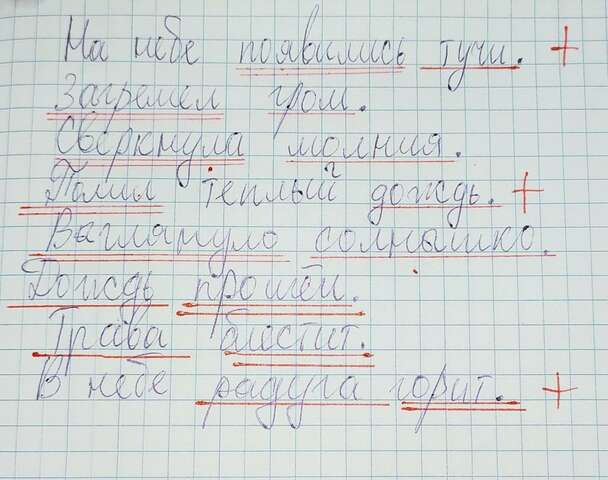 На небе появились тучи. +
Загремел гром.
Сверкнула молния.
Полил теплый дождь. +
солнышко.
Дождь прошёл.
Трава блестит.
В небе радуга горит. +